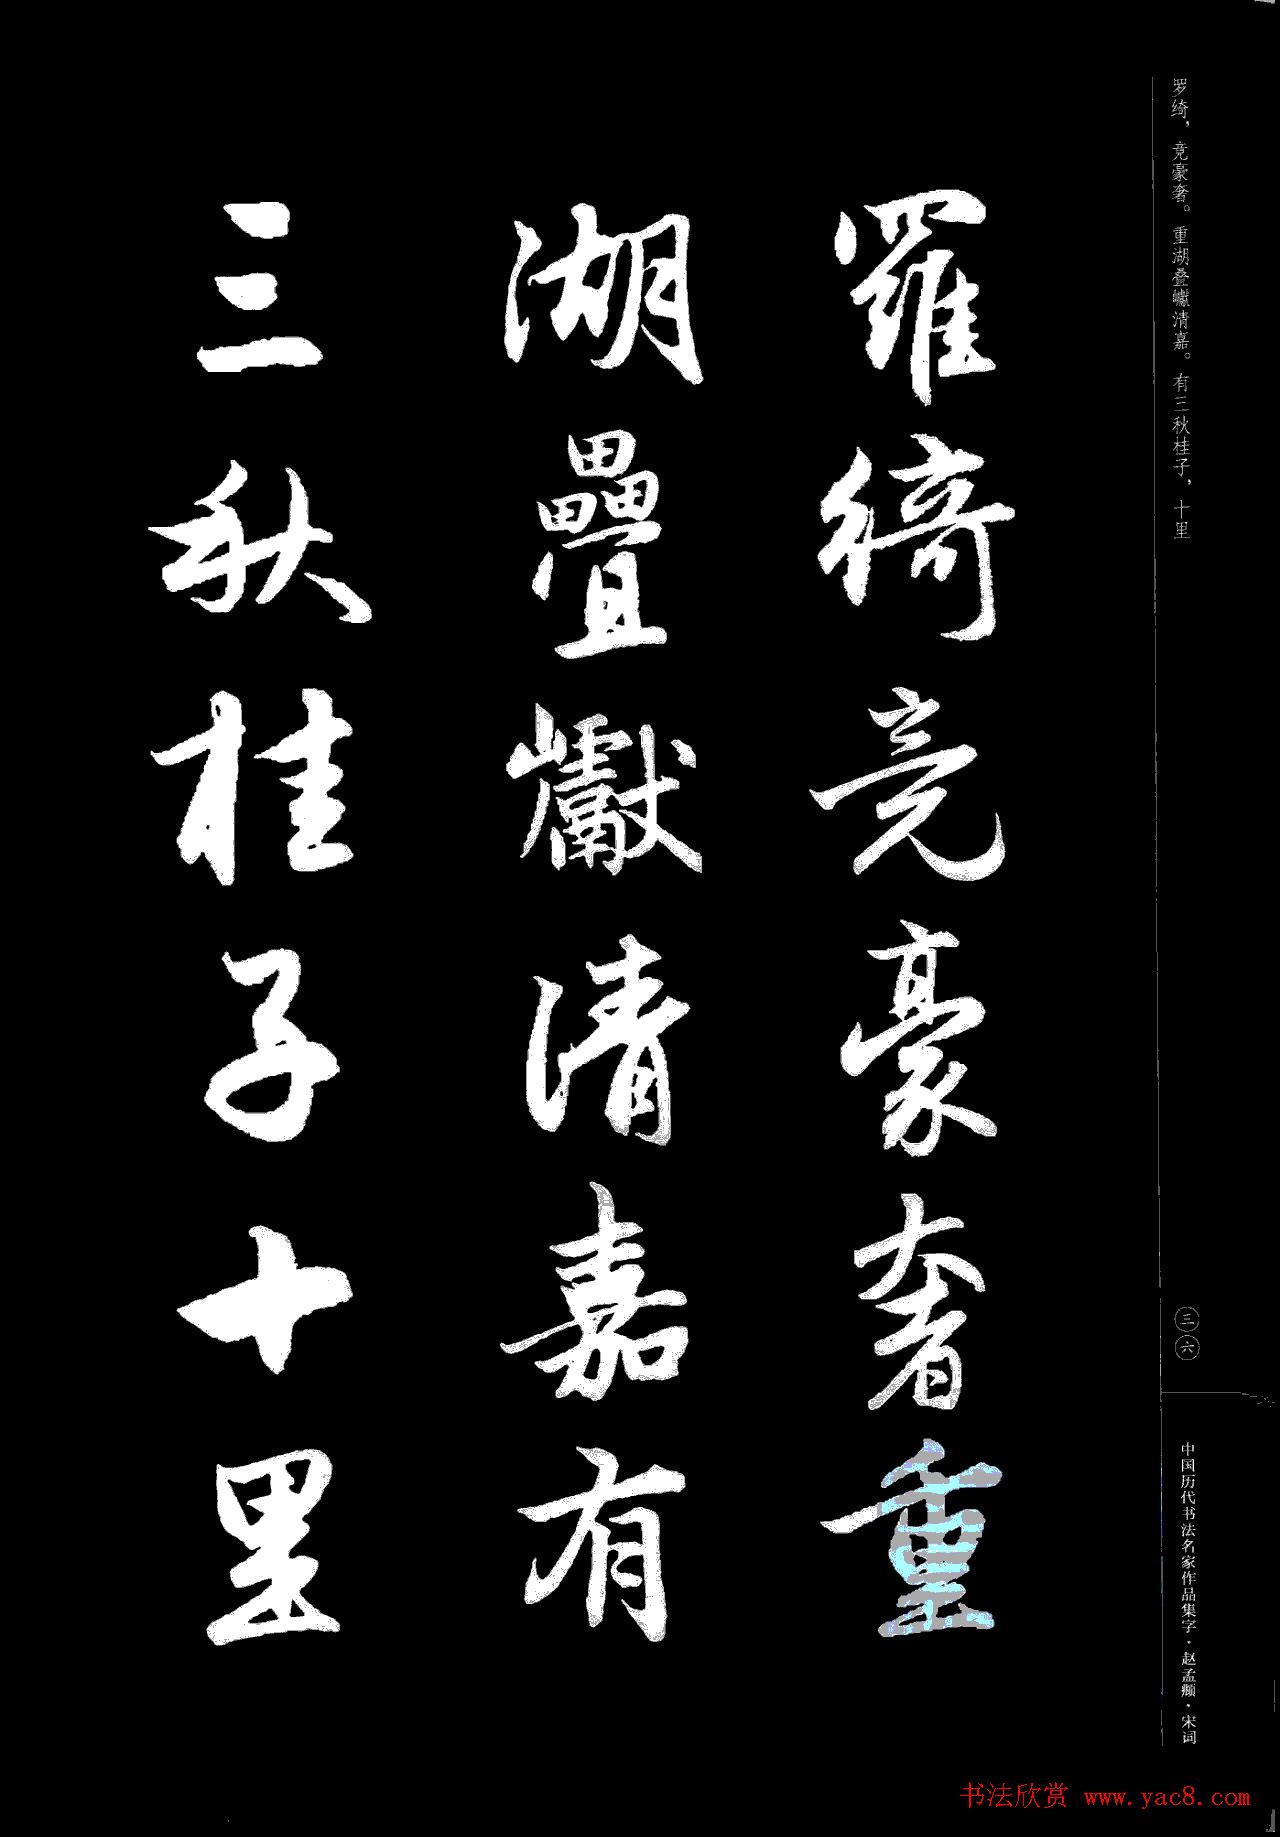 罗绮，竞豪奢。重湖叠巘清嘉。有三秋桂子，十里
羅綺竞豪奢重
湖疊巘清嘉有
三秋桂子十里
三六
中国历代书法名家作品集字·赵孟頫·宋词
书法欣赏 www.yac8.com